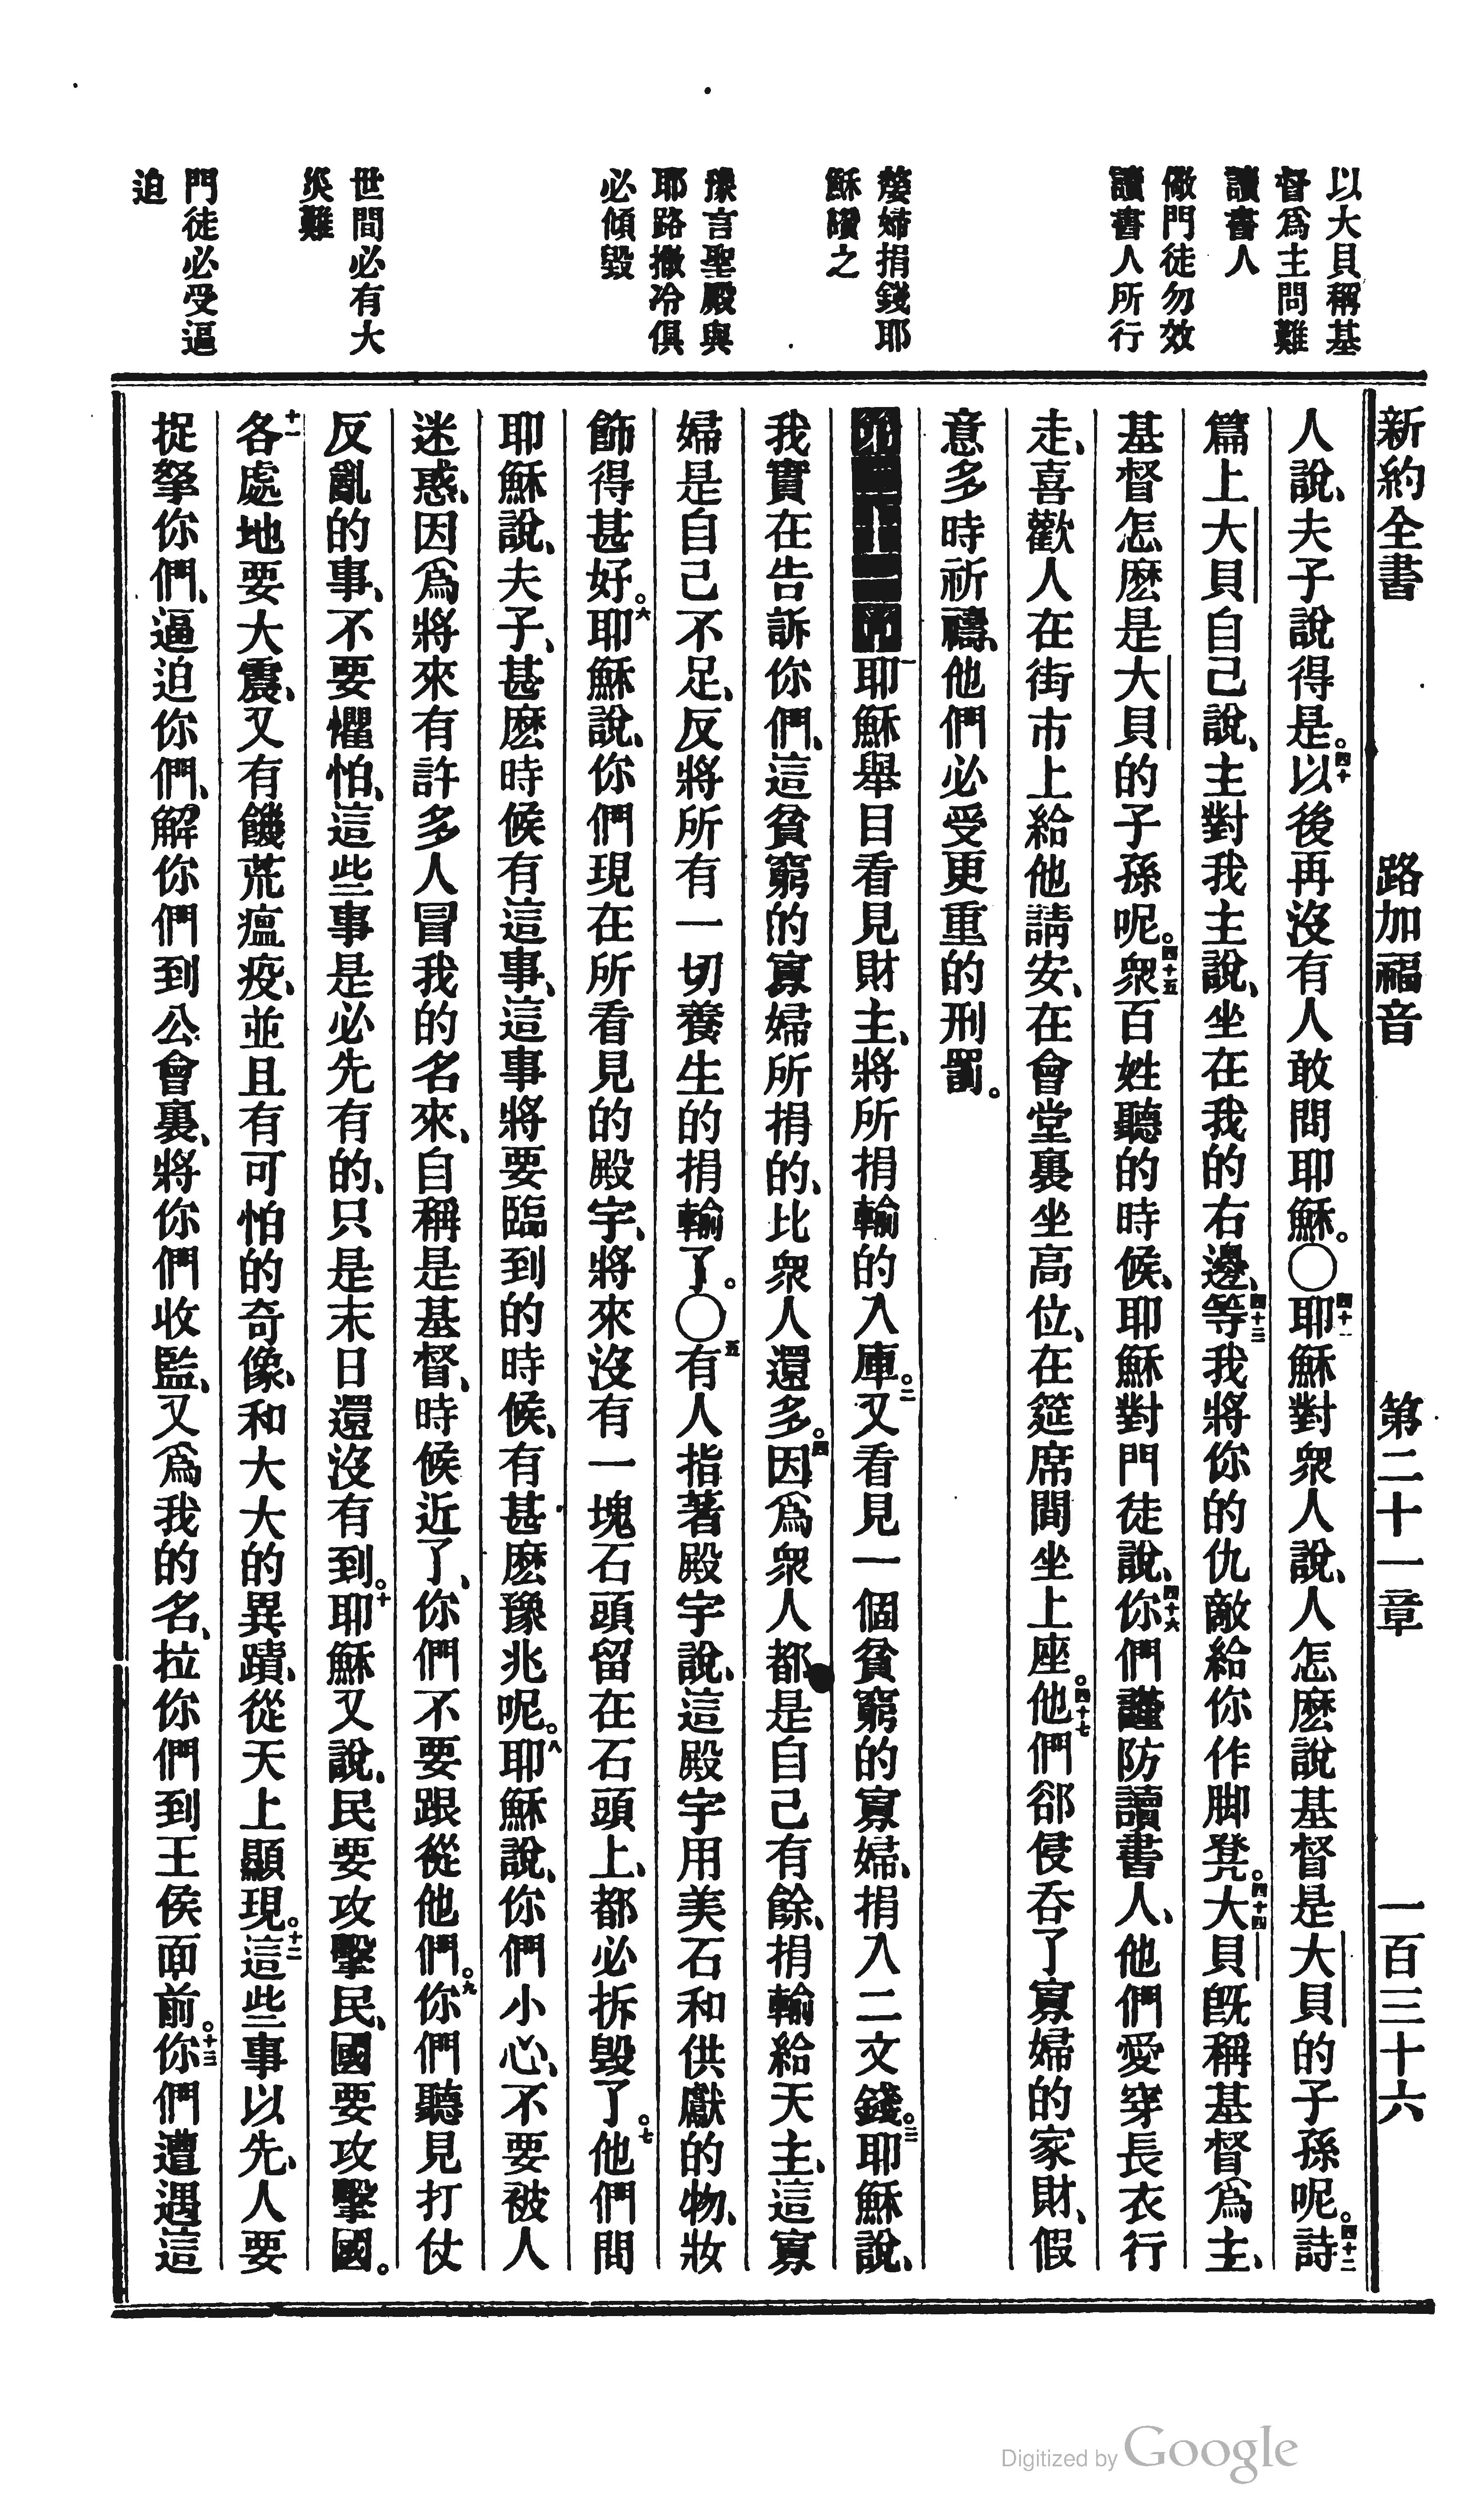 新約全書 路加福音 第二十一章 一百三十六
以大貝稱基
督爲主問難
讀書人
儆門徒勿效
讀書人所行
嫠婦捐錢耶
穌讚之
豫言聖殿與
耶路撒冷俱
必傾毀
世間必有大
災難
門徒必受逼
迫
人說、夫子說得是。四十以後再沒有人敢問耶穌。〇四十一耶穌對衆人說、人怎麽說基督是大貝的子孫呢。四十二詩
篇上大貝自己說、主對我主說、坐在我的右邊、四十三等我將你的仇敵給你作脚凳。四十四大貝旣稱基督爲主、
基督怎麽是大貝的子孫呢。四十五衆百姓聽的時候、耶穌對門徒說、四十六你們謹防讀書人、他們愛穿長衣行
走、喜歡人在街市上給他請安、在會堂裏坐高位、在筵席間坐上座。四十七他們郤侵吞了寡婦的家財、假
意多時祈禱、他們必受更重的刑罰。
一耶穌舉目看見財主、將所捐輸的入庫。二又看見一個貧窮的寡婦、捐入二文錢。三耶穌說、
我實在告訴你們、這貧窮的寡婦所捐的、比衆人還多。四因爲衆人都是自己有餘、捐輸給天主、這寡
婦是自己不足、反將所有一切養生的捐輸了。〇五有人指著殿宇說、這殿宇用美石和供獻的物、妝
飾得甚好。六耶穌說、你們現在所看見的殿宇、將來沒有一塊石頭留在石頭上、都必拆毀了。七他們問
耶穌說、夫子、甚麽時候有這事、這事將要臨到的時候、有甚麽豫兆呢。八耶穌說、你們小心、不要被人
迷惑、因爲將來有許多人冒我的名來、自稱是基督、時候近了、你們不要跟從他們。九你們聽見打仗
反亂的事、不要懼怕、這些事是必先有的、只是末日還沒有到。十耶穌又說、民要攻擊民、國要攻擊國。
十一各處地要大震、又有饑荒瘟疫、並且有可怕的奇像、和大大的異蹟、從天上顯現。十二這些事以先、人要
捉拏你們、逼迫你們、解你們到公會裏、將你們收監、又爲我的名、拉你們到王侯面前。十三你們遭遇這
Digitized by Google